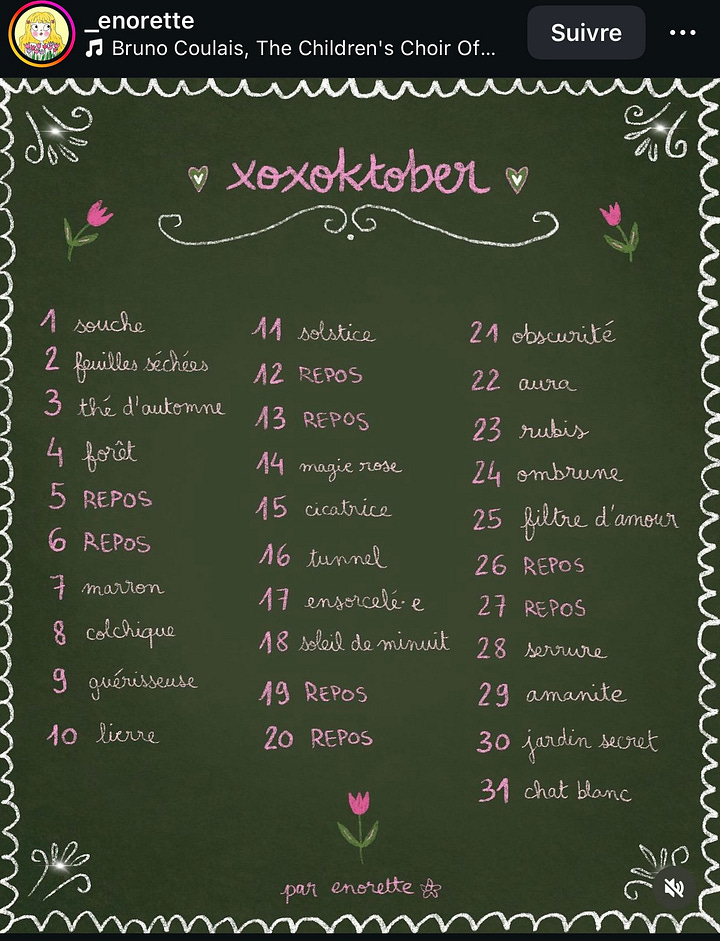 _enorette
Bruno Coulais, The Children's Choir Of...
Suivre
xoxoktober
1 souche
2 feuilles séchées
3 thé d'automne
4 forêt
5 REPOS
6 REPOS
7 marron
8 colchique
9 guérisseuse
10 lierre
11 solstice
12 REPOS
13 REPOS
14 magie rose
15 cicatrice
16 tunnel
17 ensorcelé·e
18 soleil de minuit
19 REPOS
20 REPOS
21 obscurité
22 aura
23 rubis
24 ombrune
25 filtre d'amour
26 REPOS
27 REPOS
28 serrure
29 amanite
30 jardin secret
31 chat blanc
par enorette